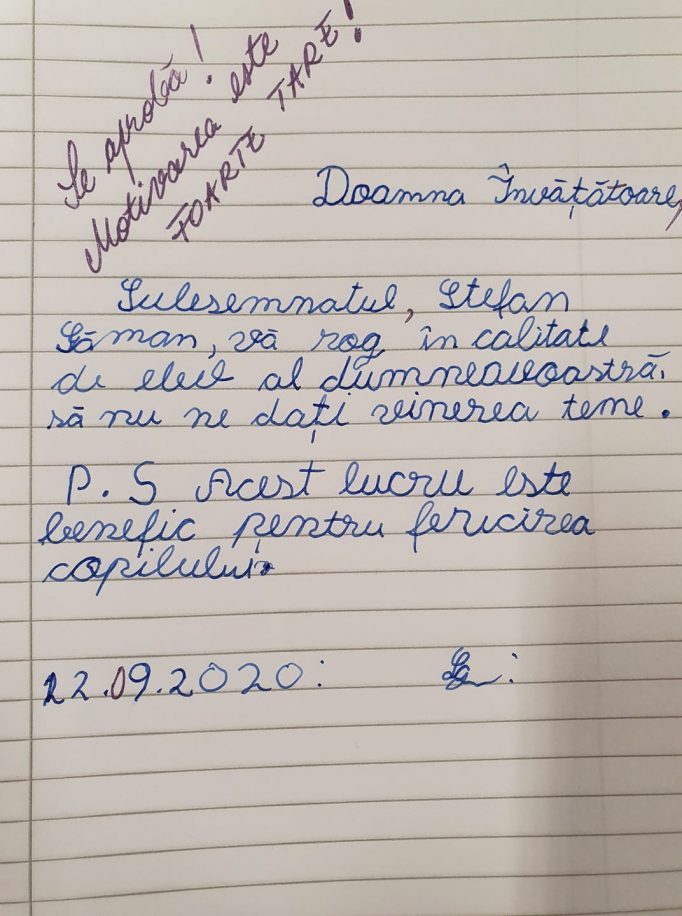 Se aprobă!
Motivarea este
FOARTE TARE!
Doamna Învățătoare,
Sulesemnatul, Ștefan
Șăman, vă rog în calitate
de elev al dumneavoastră.
să nu ne dați vinerea teme.
P.S Acest lucru este
benefic pentru fericirea
copilului.
22.09.2020: